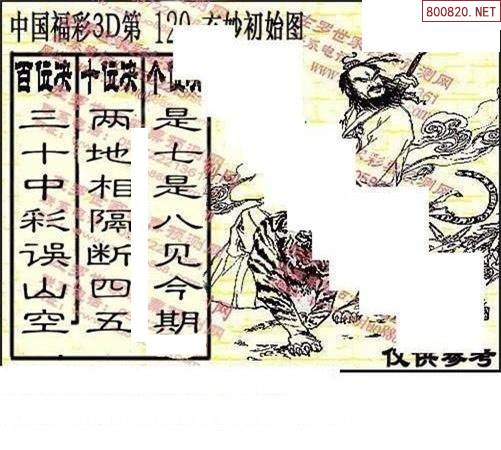 800820.NET
中国福彩3D第 120 玄妙初始图
百位决 十位决 个位决
三十中彩误山空
两地相隔断四五
是七是八见今期
仅供参考